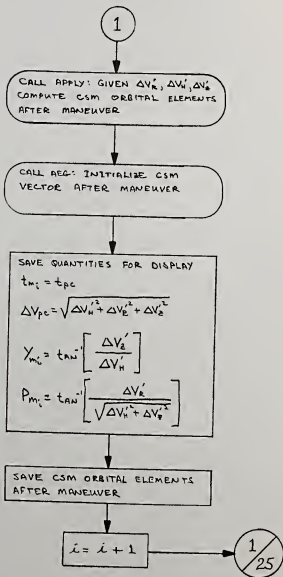 1
CALL APPLY: GIVEN ΔV'_R, ΔV'_H, ΔV'_Z
COMPUTE CSM ORBITAL ELEMENTS
AFTER MANEUVER
CALL AEG: INITIALIZE CSM
VECTOR AFTER MANEUVER
SAVE QUANTITIES FOR DISPLAY
t_{m_i} = t_{PC}
ΔV_{PC} = √(ΔV'_H² + ΔV'_R² + ΔV'_Z²)
Y_{m_i} = tAN⁻¹[ΔV'_Z / ΔV'_H]
P_{m_i} = tAN⁻¹[ΔV'_R / √(ΔV'_H² + ΔV'_Z²)]
SAVE CSM ORBITAL ELEMENTS
AFTER MANEUVER
i = i + 1
1/25